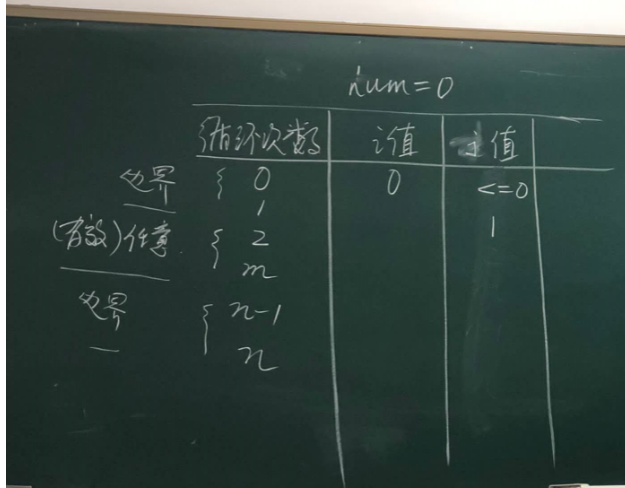 num=0
循环次数 i值 i值
边界 { 0 0 <=0
1
(有效)任意 { 2 1
m
边界 { n-1
n